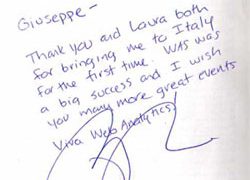 Giuseppe -
Thank you and Laura both
for bringing me to Italy
for the first time. WAS was
a big success and I wish
you many more great events
Viva Web Analytics!